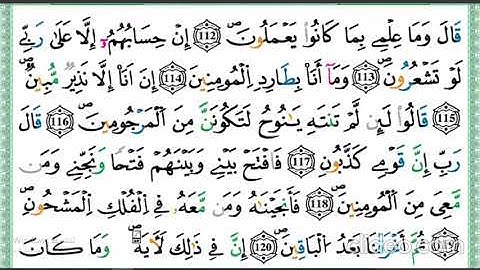 قَالَ وَمَا عِلْمِي بِمَا كَانُوا يَعْمَلُونَ ۝112 إِنْ حِسَابُهُمْ إِلَّا عَلَىٰ رَبِّي
لَوْ تَشْعُرُونَ ۝113 وَمَا أَنَا بِطَارِدِ الْمُؤْمِنِينَ ۝114 إِنْ أَنَا إِلَّا نَذِيرٌ مُّبِينٌ
۝115 قَالُوا لَئِن لَّمْ تَنتَهِ يَٰنُوحُ لَتَكُونَنَّ مِنَ الْمَرْجُومِينَ ۝116 قَالَ
رَبِّ إِنَّ قَوْمِي كَذَّبُونِ ۝117 فَافْتَحْ بَيْنِي وَبَيْنَهُمْ فَتْحًا وَنَجِّنِي وَمَن
مَّعِيَ مِنَ الْمُؤْمِنِينَ ۝118 فَأَنجَيْنَٰهُ وَمَن مَّعَهُ فِي الْفُلْكِ الْمَشْحُونِ
۝119 ثُمَّ أَغْرَقْنَا بَعْدُ الْبَاقِينَ ۝120 إِنَّ فِي ذَٰلِكَ لَآيَةً وَمَا كَانَ